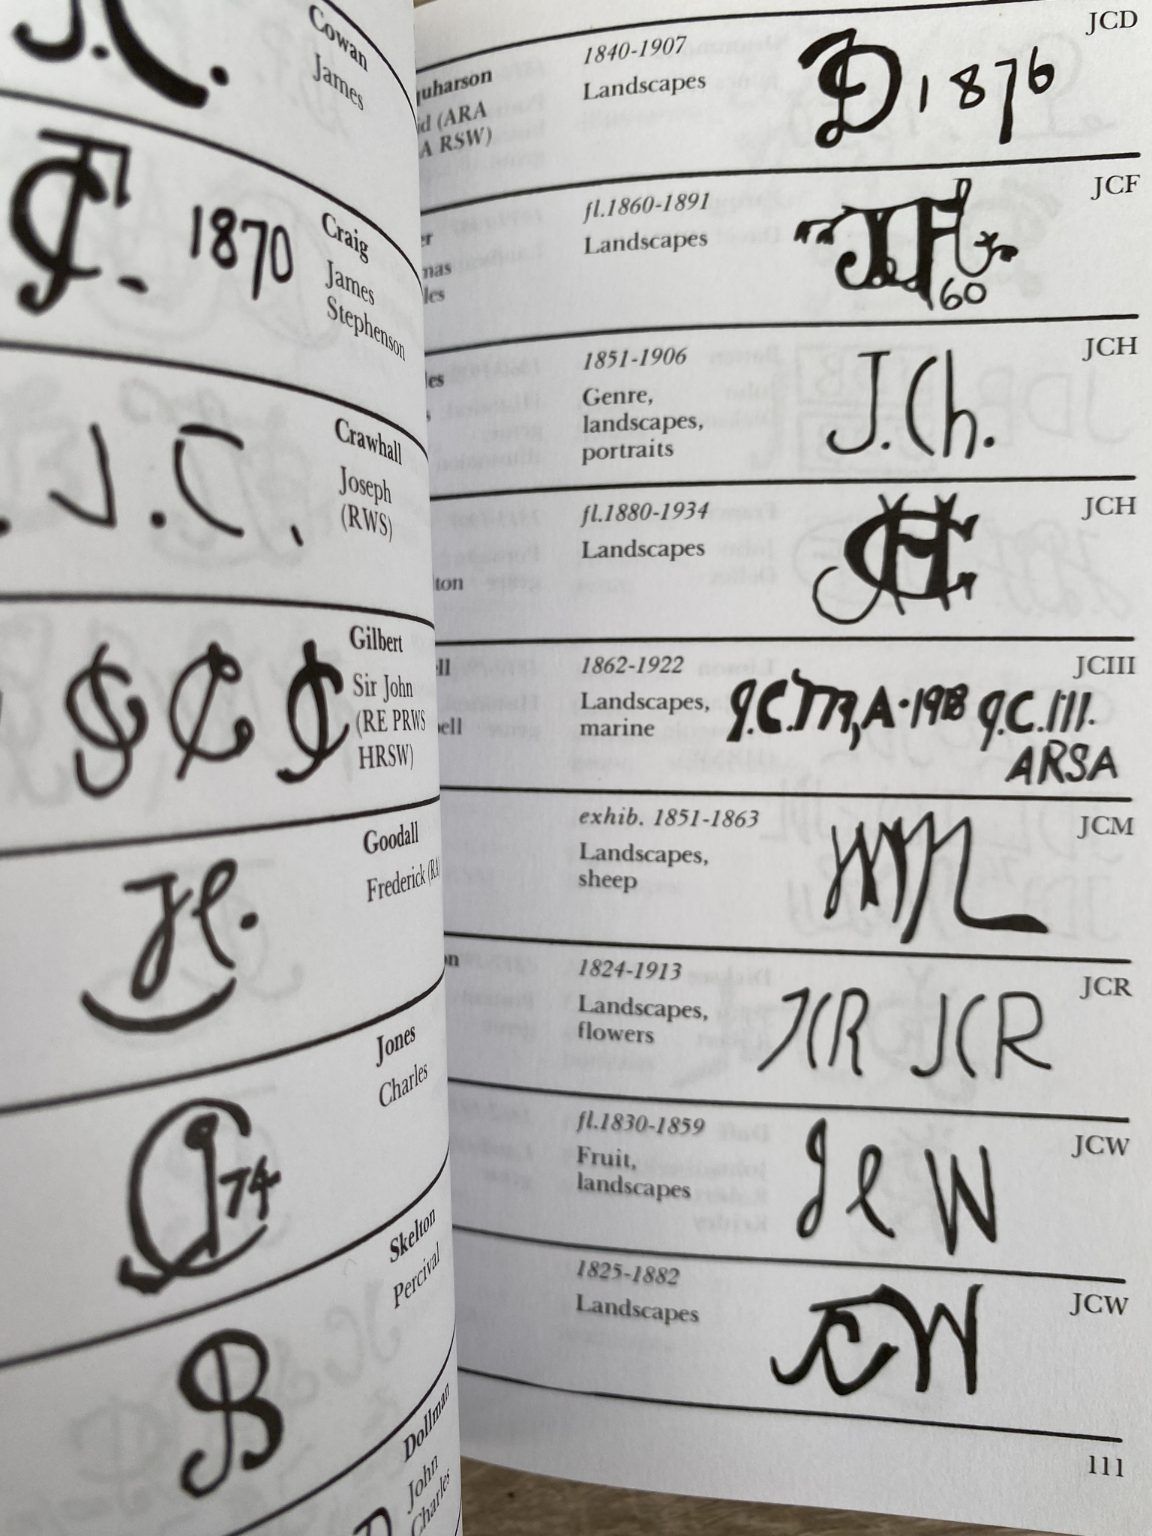 Cowan
James
J.C.
Craig
James
Stephenson
JC. 1870
Crawhall
Joseph
(RWS)
J.C.
Gilbert
Sir John
(RE PRWS
HRSW)
Goodall
Frederick
Jones
Charles
74
Skelton
Percival
Dollman
John
Charles
1840-1907
Landscapes
D 1876
JCD
fl.1860-1891
Landscapes
60
JCF
1851-1906
Genre,
landscapes,
portraits
J.Ch.
JCH
fl.1880-1934
Landscapes
JCH
1862-1922
Landscapes,
marine
ARSA
JCIII
exhib. 1851-1863
Landscapes,
sheep
JCM
1824-1913
Landscapes,
flowers
JCR JCR
JCR
fl.1830-1859
Fruit,
landscapes
JCW
JCW
1825-1882
Landscapes
JCW
JCW
111